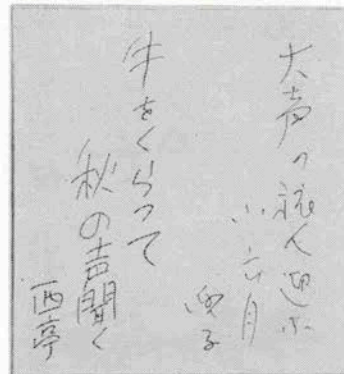 大声の旅人迎ふ
小六月
牛をくらって
秋の声聞く
酉亭